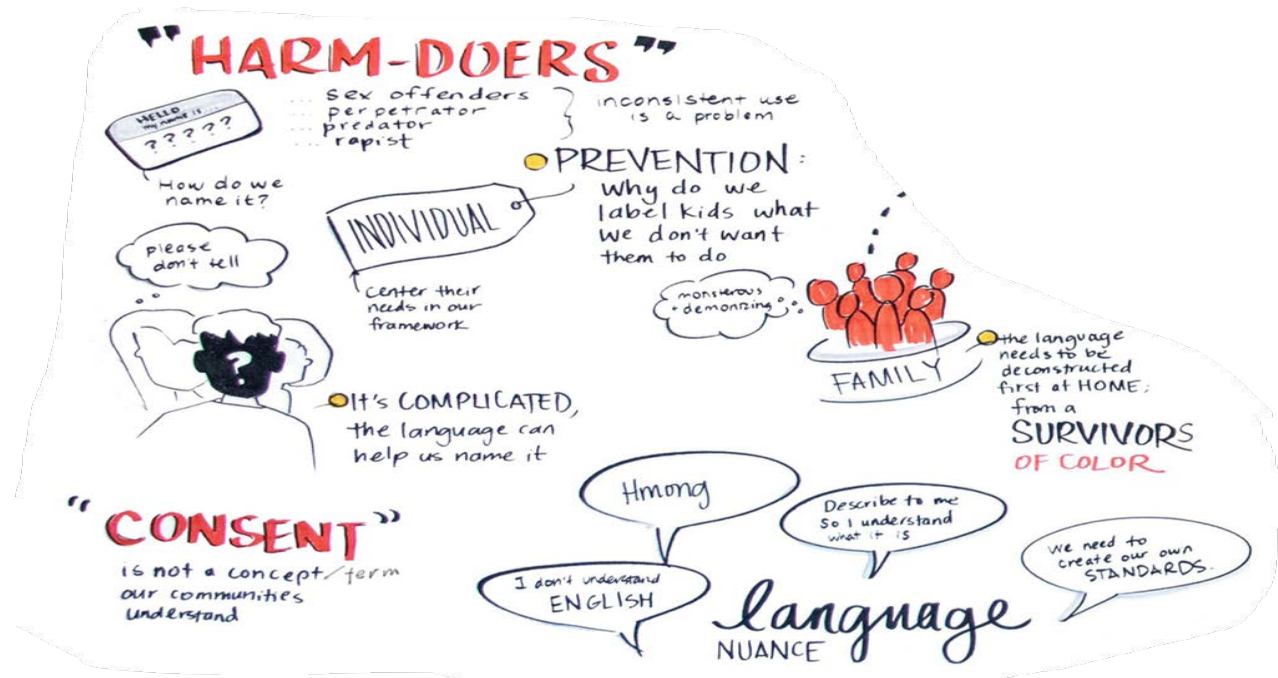 "HARM-DOERS"
HELLO
my name is...
? ? ? ? ?
How do we
name it?
... sex offenders
... perpetrator
... predator
... rapist
inconsistent use
is a problem
PREVENTION:
Why do we
label kids what
we don't want
them to do
INDIVIDUAL
center their
needs in our
framework
please
don't tell
?
It's COMPLICATED,
the language can
help us name it
monsterous
demonizing
FAMILY
the language
needs to be
deconstructed
first at HOME;
from a
SURVIVORS
OF COLOR
"CONSENT"
is not a concept/term
our communities
understand
Hmong
I don't understand
ENGLISH
Describe to me
So I understand
what it is
We need to
create our own
STANDARDS.
language
NUANCE